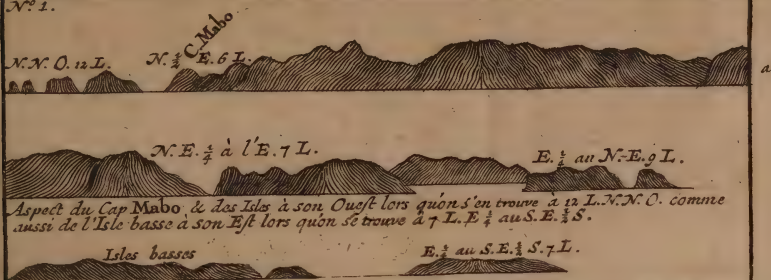 N.º 1.
C. Mabo
N.N.O. 12 L.
N. ½ E. 6 L.
a
N.E. ¼ à l'E. 7 L.
E. ¼ au N-E. 9 L.
Aspect du Cap Mabo, & des Isles à son Ouest lors qu'on s'en trouve à 12 L. N.N.O. comme
aussi de l'Isle basse à son Est lors qu'on se trouve à 7 L. E ¼ au S.E. ½ S.
Isles basses
E. ¼ au S.E. ½ S. 7 L.